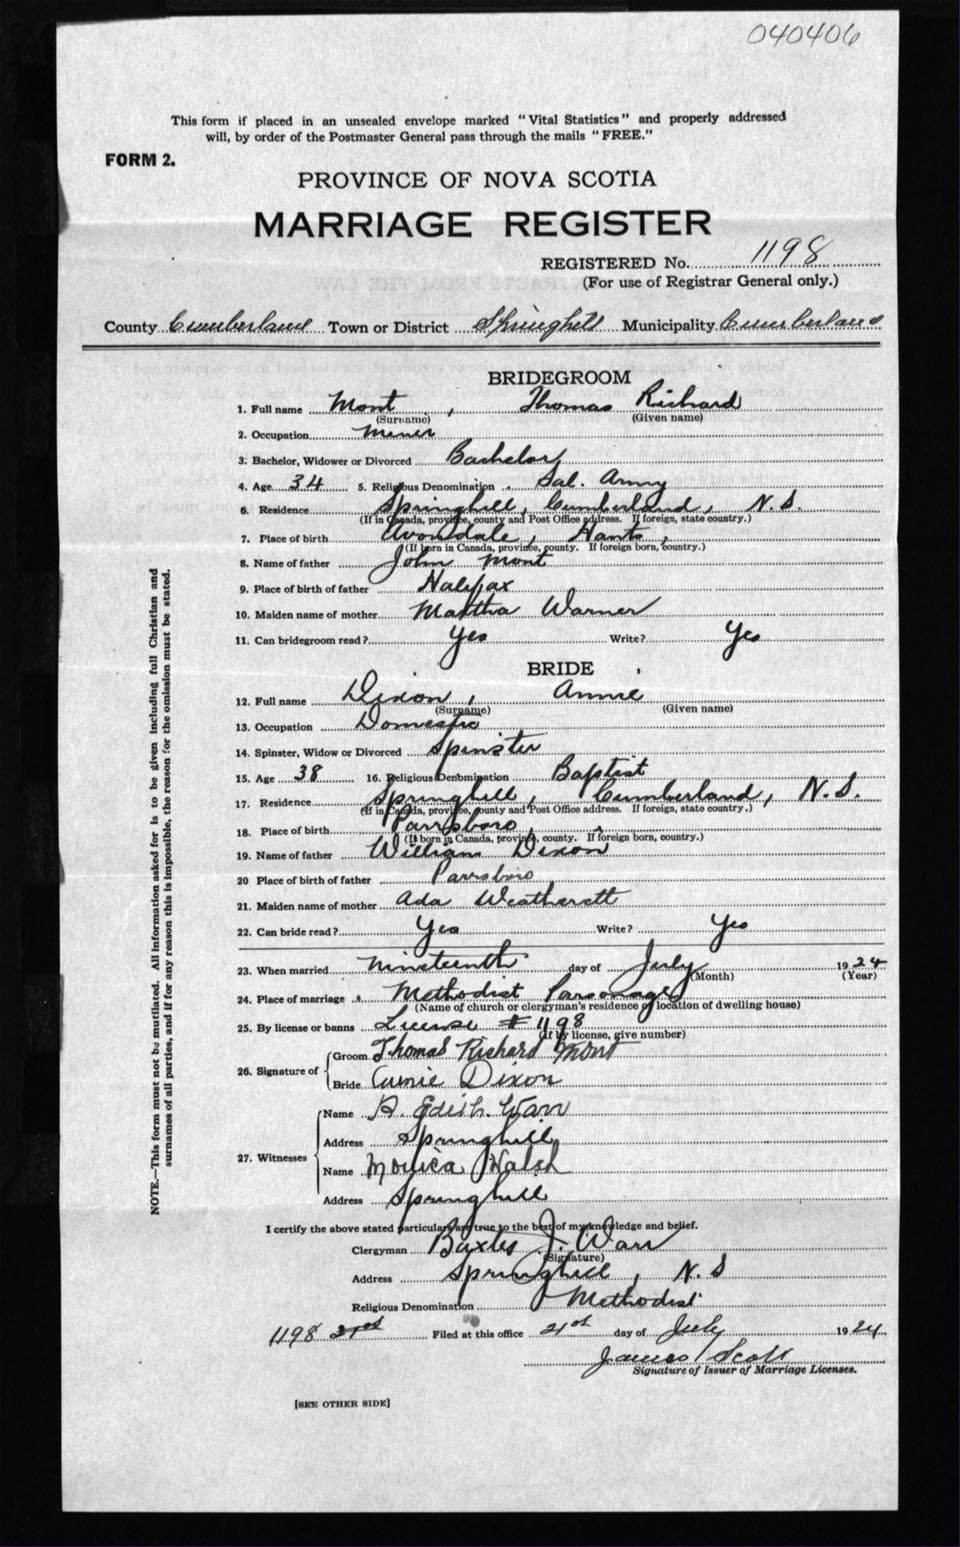 040406
This form if placed in an unsealed envelope marked "Vital Statistics" and properly addressed
will, by order of the Postmaster General pass through the mails "FREE."
FORM 2.
PROVINCE OF NOVA SCOTIA
MARRIAGE REGISTER
REGISTERED No. 1198
(For use of Registrar General only.)
County Cumberland Town or District Springhill Municipality Cumberland
BRIDEGROOM
1. Full name Mont, Thomas Richard
(Surname) (Given name)
2. Occupation Miner
3. Bachelor, Widower or Divorced Bachelor
4. Age 34 5. Religious Denomination Sal. Army
6. Residence Springhill, Cumberland, N.S.
(If in Canada, province, county and Post Office address. If foreign, state country.)
7. Place of birth Avondale, Hants,
(If born in Canada, province, county. If foreign born, country.)
8. Name of father John Mont
9. Place of birth of father Halifax
10. Maiden name of mother Martha Warner
11. Can bridegroom read? Yes Write? Yes
BRIDE
12. Full name Dixon, Annie
(Surname) (Given name)
13. Occupation Domestic
14. Spinster, Widow or Divorced Spinster
15. Age 38 16. Religious Denbmination Baptist
17. Residence Springhill, Cumberland, N.S.
(If in Canada, province, county and Post Office address. If foreign, state country.)
18. Place of birth Parrsboro,
(If born in Canada, province, county. If foreign born, country.)
19. Name of father William Dixon
20 Place of birth of father Parrsboro
21. Maiden name of mother Ada Weatherett
22. Can bride read? Yes Write? Yes
23. When married Nineteenth day of July 1924
(Month) (Year)
24. Place of marriage Methodist Parsonage
(Name of church or clergyman's residence or location of dwelling house)
25. By license or banns License # 1198
(If by license, give number)
26. Signature of
Groom Thomas Richard Mont
Bride Annie Dixon
27. Witnesses
Name A. Edith Warr
Address Springhill
Name Monica Walsh
Address Springhill
I certify the above stated particulars are true to the best of my knowledge and belief.
Clergyman Baxter J. Warr
(Signature)
Address Springhill, N.S
Religious Denomination Methodist
1198 21st Filed at this office 21st day of July 1924
James Scott
Signature of Issuer of Marriage Licenses.
[SEE OTHER SIDE]
NOTE.—This form must not be mutilated. All information asked for is to be given including full Christian and
surnames of all parties, and if for any reason this is impossible, the reason for the omission must be stated.